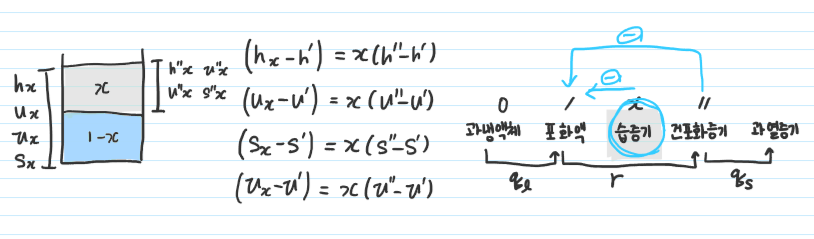 hx
ux
υx
Sx
x
1-x
h''x u''x
υ''x s''x
(hx-h') = x(h''-h')
(ux-u') = x(u''-u')
(Sx-s') = x(s''-s')
(υx-υ') = x(υ''-υ')
⊖
⊖
0 ′ x ″
과냉액체 포화액 습증기 건포화증기 과열증기
qℓ r qs